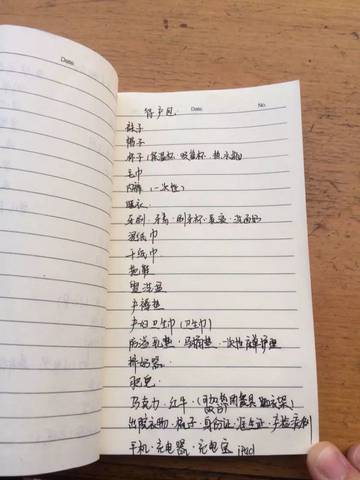 Date.
待产包 Date. No.
袜子
帽子
杯子(保温杯·吸管杯·热水瓶)
毛巾
内裤(一次性)
睡衣
牙刷·牙膏·刷牙杯·梳·洗面奶
湿纸巾
干纸巾
拖鞋
盥洗盆
产褥垫
产妇卫生巾(卫生巾)
防溢乳垫·马桶垫·一次性床单护垫
挤奶器
肥皂
巧克力·红牛·(可加热用餐具 晾衣架)
出院衣物·梳子·身份证·准生证·产检病例
手机·充电器·充电宝 iPad